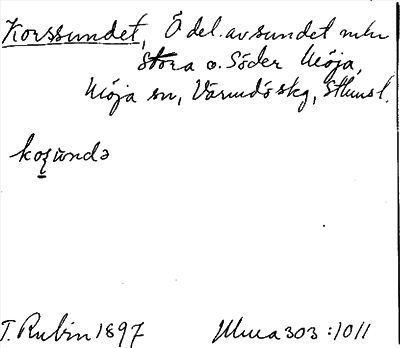 Korssundet, Ö del. av sundet mln
Stora o. Söder Möja,
Möja sn, Värmdö skg, Sthmsl.
koʂundə
T. Rubin 1897 Ulma 303:1011